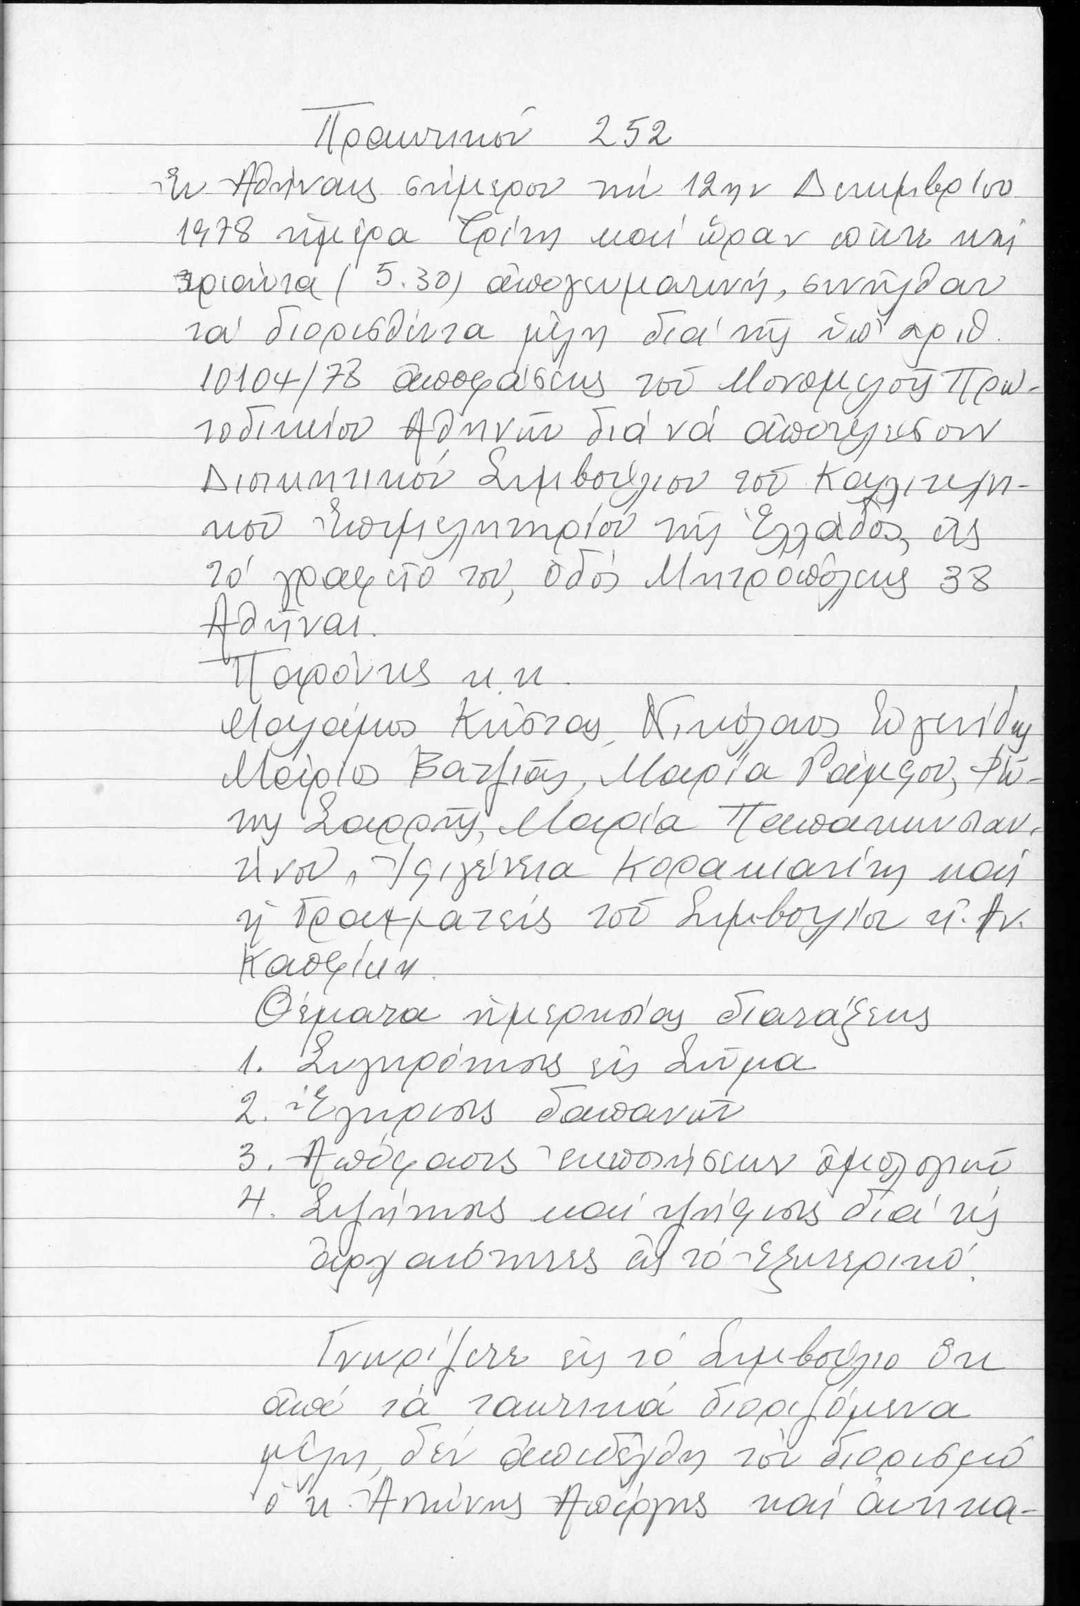 Πρακτικόν 252
Ἐν Ἀθήναις σήμερον τήν 12ην Δεκεμβρίου
1978 ἡμέρα Τρίτη καί ὥραν πέντε καί
τριάντα (5.30) ἀπογευματινή, συνῆλθαν
τά διορισθέντα μέλη διά τῆς ὑπ' ἀριθ.
10104/78 ἀποφάσεως τοῦ Μονομελοῦς Πρω-
τοδικείου Ἀθηνῶν διά νά ἀποτελέσουν
Διοικητικόν Συμβούλιον τοῦ Καλλιτεχνι-
κοῦ Ἐπιμελητηρίου τῆς Ἑλλάδος, εἰς
τό γραφεῖο του, ὁδός Μητροπόλεως 38
Ἀθῆναι.
Παρόντες κ.κ.
Μαλάμος Κώστας, Νικόλαος Εὐγενίδης
Μάριος Βατζιᾶς, Μαρία Ράμφου, Φώ-
της Σαρρῆς, Μαρία Παπακωνσταν-
τίνου, Ἰφιγένεια Κορακιανίτη καί
ἡ Γραμματεύς τοῦ Συμβουλίου κ. Ἀν.
Καπρίκη.
Θέματα ἡμερησίας διατάξεως
1. Συγκρότησις εἰς Σῶμα
2. Ἔγκρισις δαπανῶν
3. Ἀπόφασις ἐκποιήσεων ὁμολογιῶν
4. Συζήτησις καί ψήφισις διά τίς
ἀρχαιότητες εἰς τό Ἐξωτερικό.
Γνωρίζετε εἰς τό Συμβούλιο ὅτι
ἀπό τά τακτικά διοριζόμενα
μέλη, δέν ἀπεδέχθη τόν διορισμό
ὁ κ. Ἀντώνης Ἀπέργης καί ἀντικα-